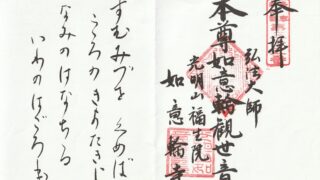 奉拝
弘法大師
本尊如意輪觀世音
光明山福生院
如意輪寺
すむみづを くめば
こころのきよたきに
なみのはなちる
いわのはごろも